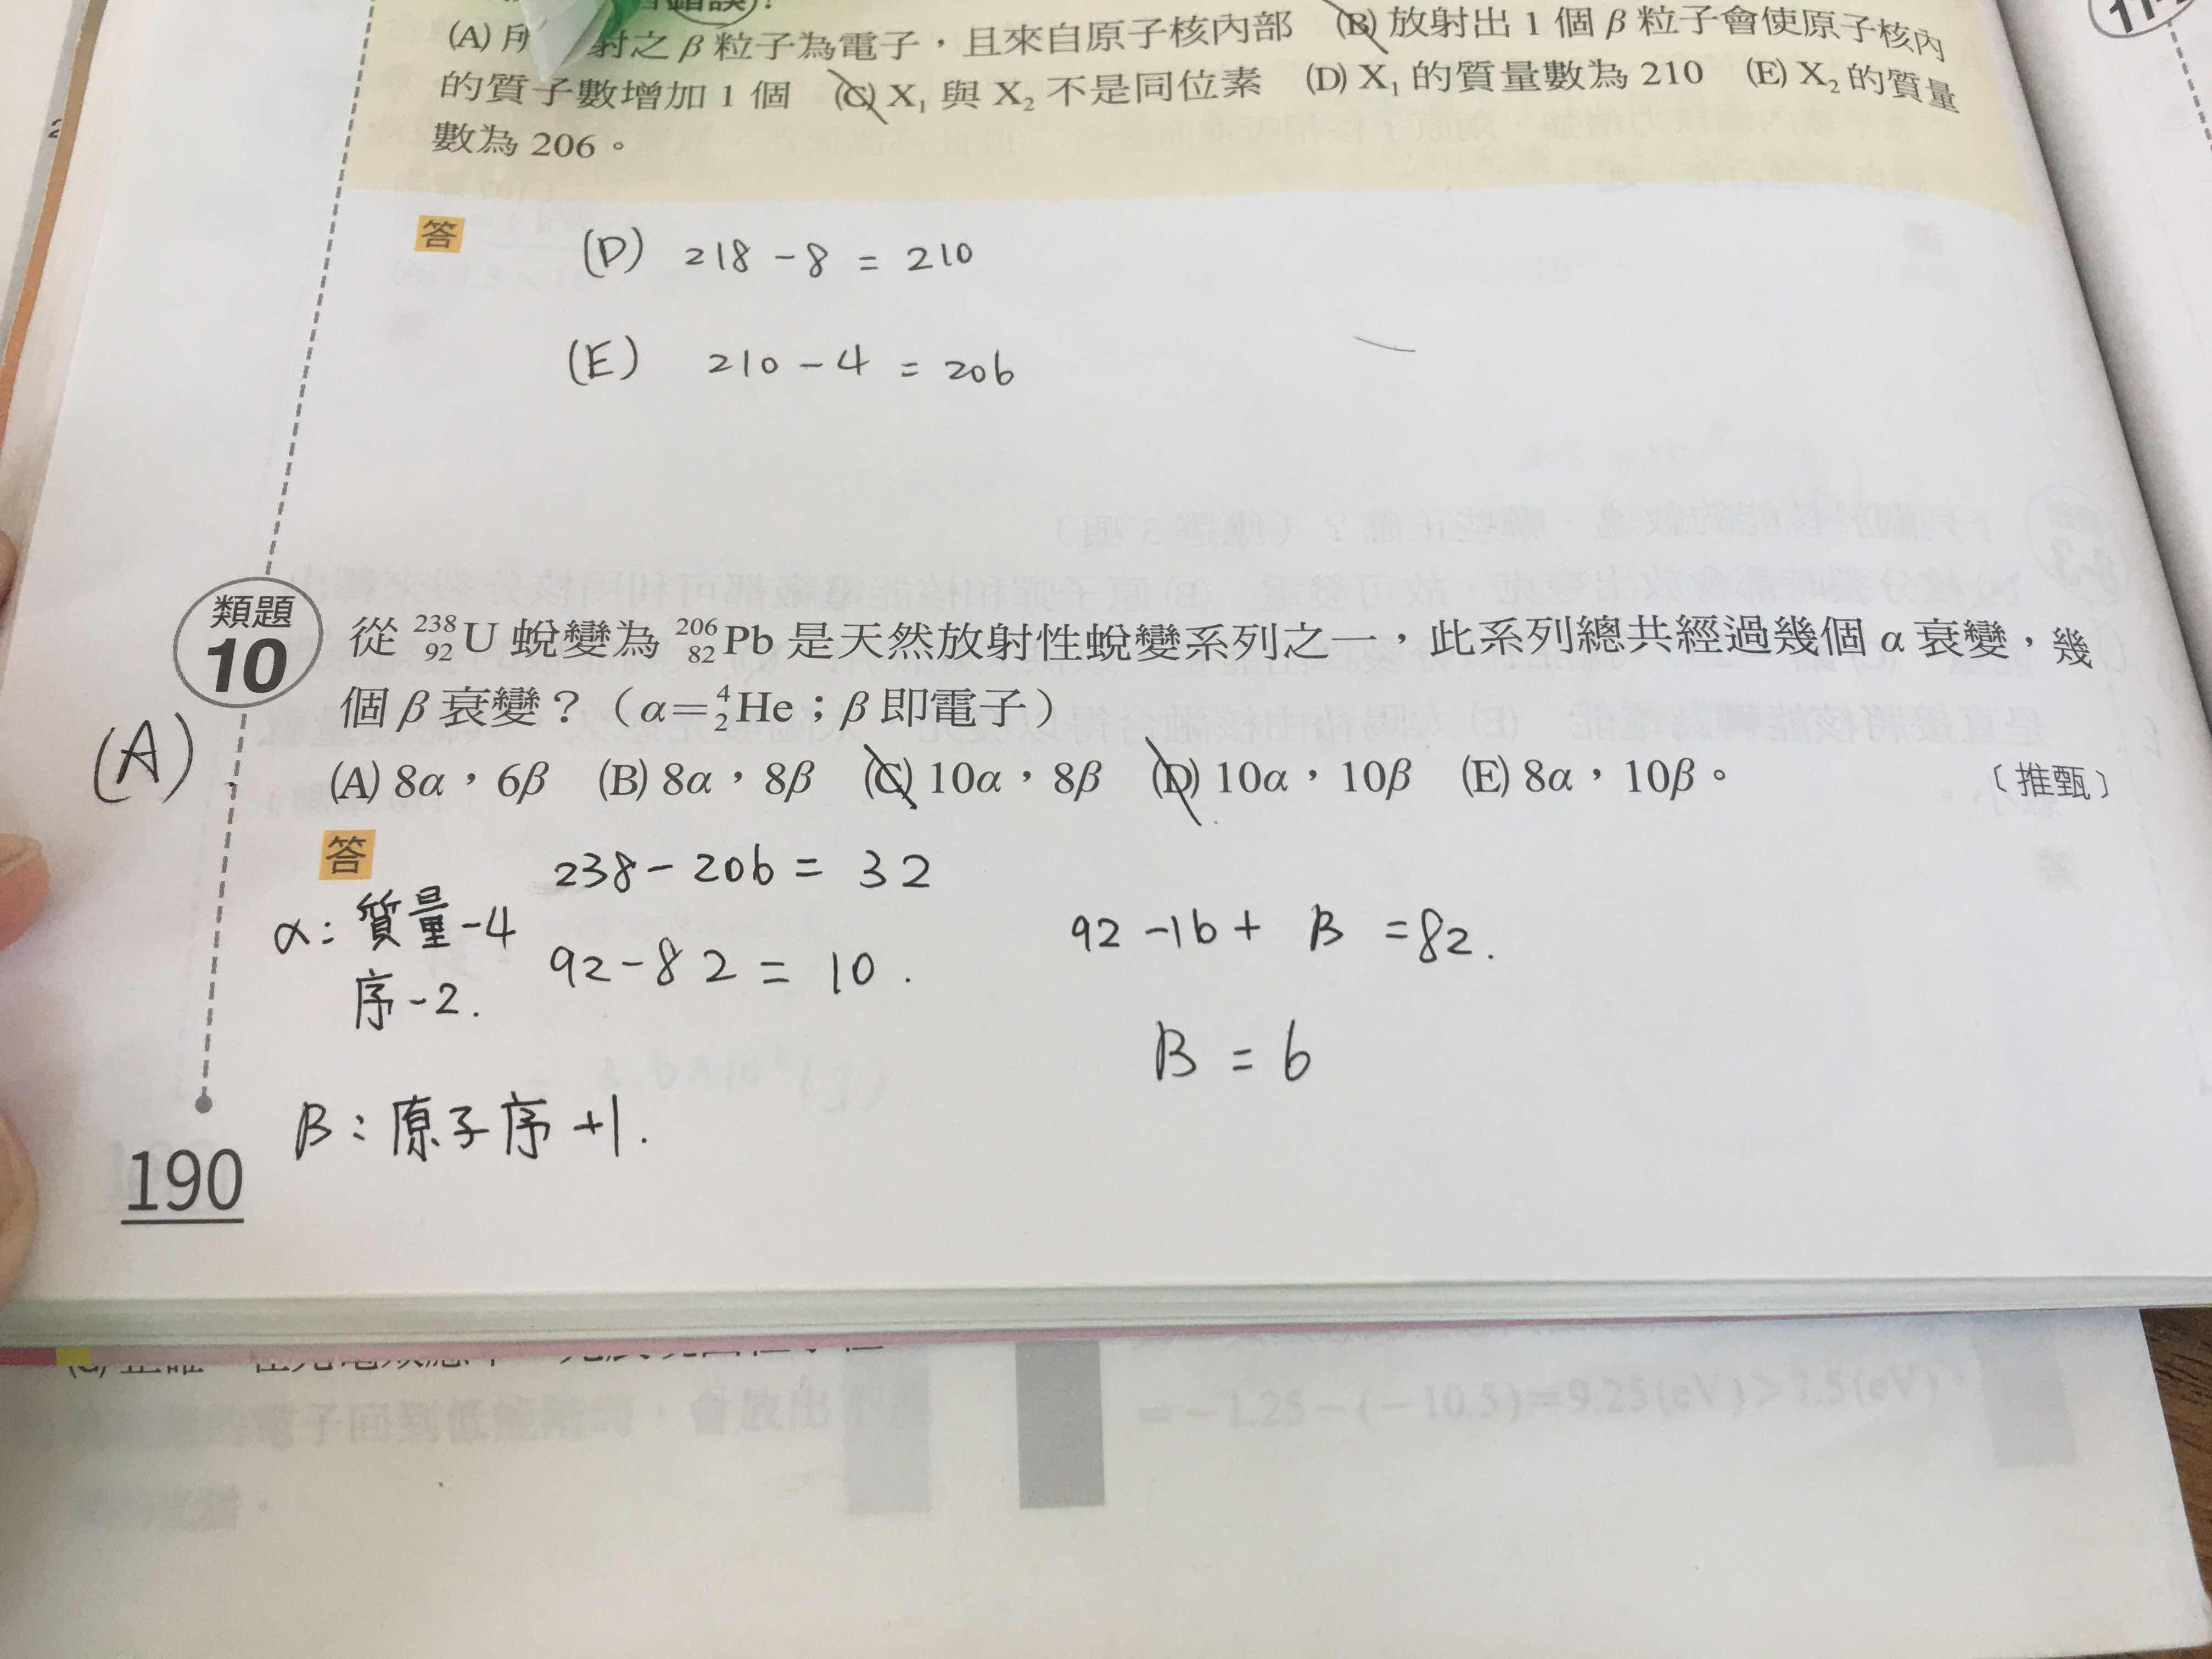 (A) 所 射之 β 粒子為電子，且來自原子核內部 (B) 放射出 1 個 β 粒子會使原子核內
的質子數增加 1 個 (C) X₁ 與 X₂ 不是同位素 (D) X₁ 的質量數為 210 (E) X₂ 的質量
數為 206。
答
(D) 218 - 8 = 210
(E) 210 - 4 = 206
類題
10
從 ²³⁸₉₂U 蛻變為 ²⁰⁶₈₂Pb 是天然放射性蛻變系列之一，此系列總共經過幾個 α 衰變，幾
個 β 衰變？（α=⁴₂He；β 即電子）
(A)
(A) 8α，6β (B) 8α，8β (C) 10α，8β (D) 10α，10β (E) 8α，10β。
〔推甄〕
答
238 - 206 = 32
α: 質量-4
序-2.
92 - 82 = 10.
92 - 16 + β = 82.
β = 6
β: 原子序 +1.
190
電子回到低能階時，會放出
= -1.25 - (-10.5) = 9.25(eV) > 7.5(eV)